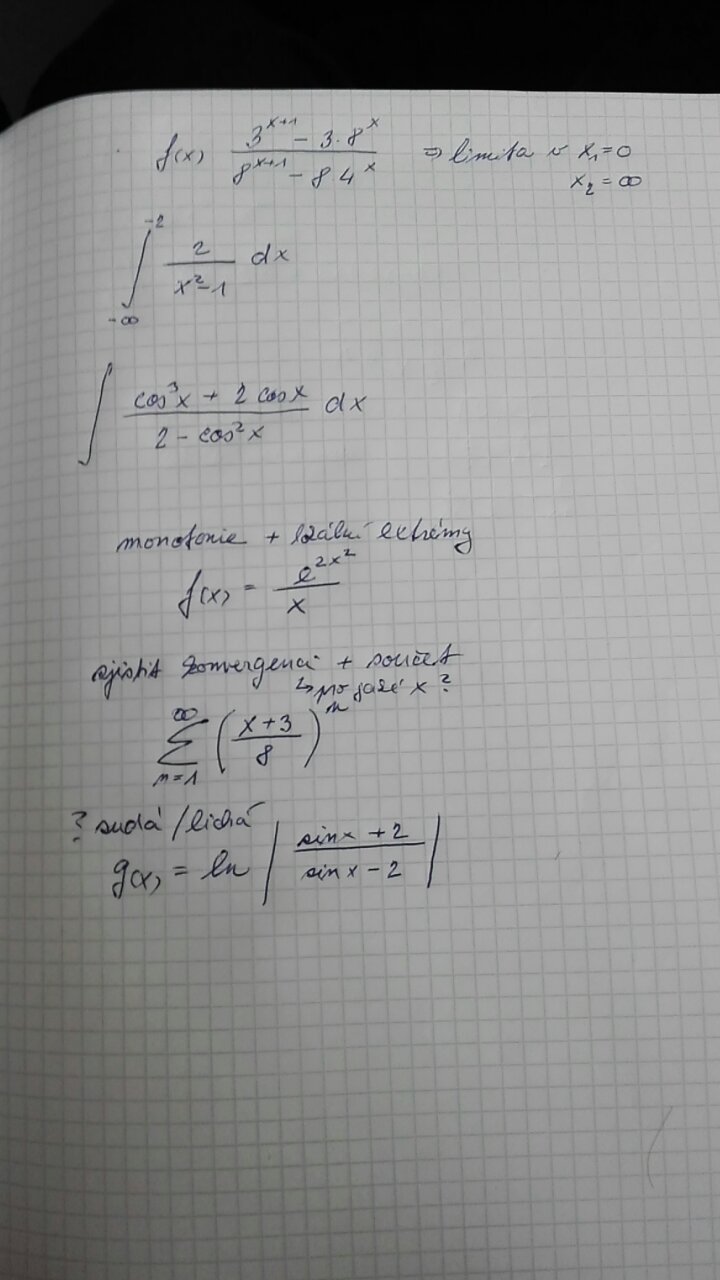 f(x) \frac{3^{x+1} - 3 \cdot 8^x}{8^{x+1} - 8 \cdot 4^x} ⇒ limita v x_1 = 0
x_2 = ∞
\int_{-∞}^{-2} \frac{2}{x^2-1} dx
\int \frac{cos^3x + 2 cosx}{2 - cos^2x} dx
monotonie + lokální extrémy
f(x) = \frac{e^{2x^2}}{x}
zjistit konvergenci + součet
↳ pro jaké x?
\sum_{n=1}^{∞} \left(\frac{x+3}{8}\right)^n
? sudá / lichá
g(x) = ln \left| \frac{sinx + 2}{sinx - 2} \right|